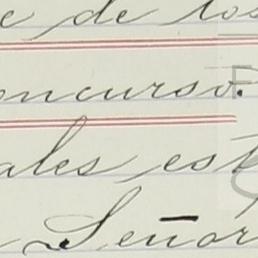 e de los
oncurso.
ales est
Señor